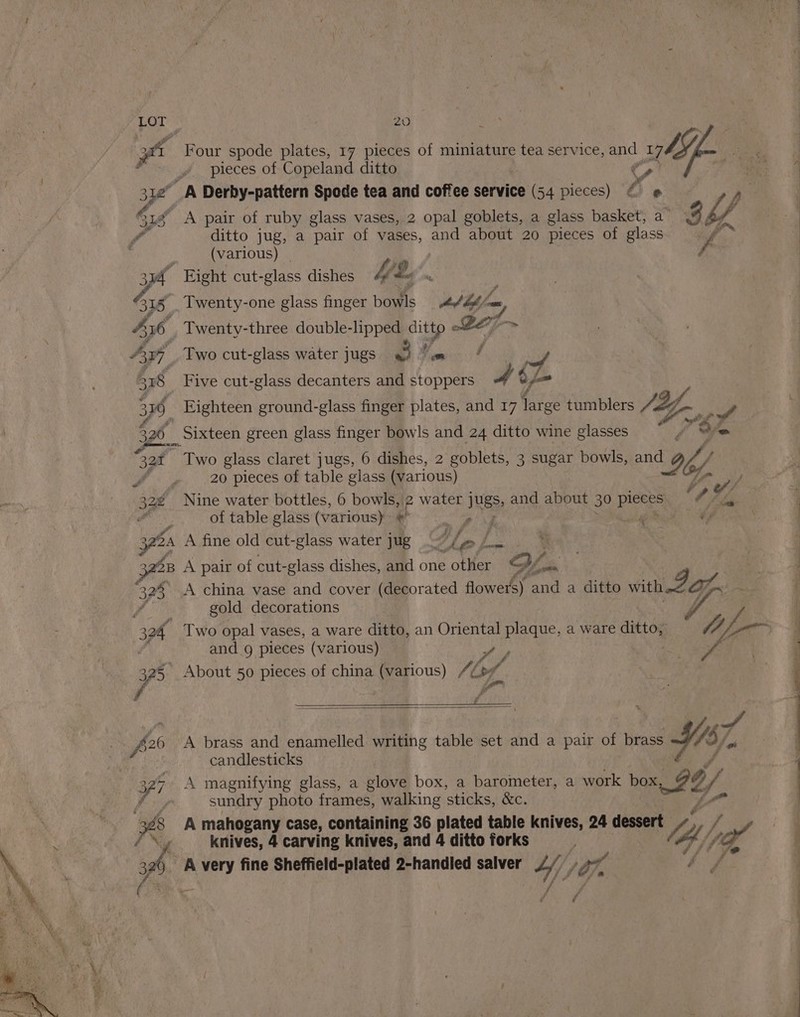 LOT 20
311 Four spode plates, 17 pieces of miniature tea service, and 17
pieces of Copeland ditto
312 A Derby-pattern Spode tea and coffee service (54 pieces)
313 A pair of ruby glass vases, 2 opal goblets, a glass basket, a
ditto jug, a pair of vases, and about 20 pieces of glass
(various)
314 Eight cut-glass dishes
315 Twenty-one glass finger bowls
316 Twenty-three double-lipped ditto
317 Two cut-glass water jugs
318 Five cut-glass decanters and stoppers
319 Eighteen ground-glass finger plates, and 17 large tumblers
320 Sixteen green glass finger bowls and 24 ditto wine glasses
321 Two glass claret jugs, 6 dishes, 2 goblets, 3 sugar bowls, and
20 pieces of table glass (various)
322 Nine water bottles, 6 bowls, 2 water jugs, and about 30 pieces
of table glass (various)
322A A fine old cut-glass water jug
322B A pair of cut-glass dishes, and one other
323 A china vase and cover (decorated flowers) and a ditto with
gold decorations
324 Two opal vases, a ware ditto, an Oriental plaque, a ware ditto,
and 9 pieces (various)
325 About 50 pieces of china (various)
326 A brass and enamelled writing table set and a pair of brass
candlesticks
327 A magnifying glass, a glove box, a barometer, a work box,
sundry photo frames, walking sticks, &c.
328 A mahogany case, containing 36 plated table knives, 24 dessert
knives, 4 carving knives, and 4 ditto forks
329 A very fine Sheffield-plated 2-handled salver